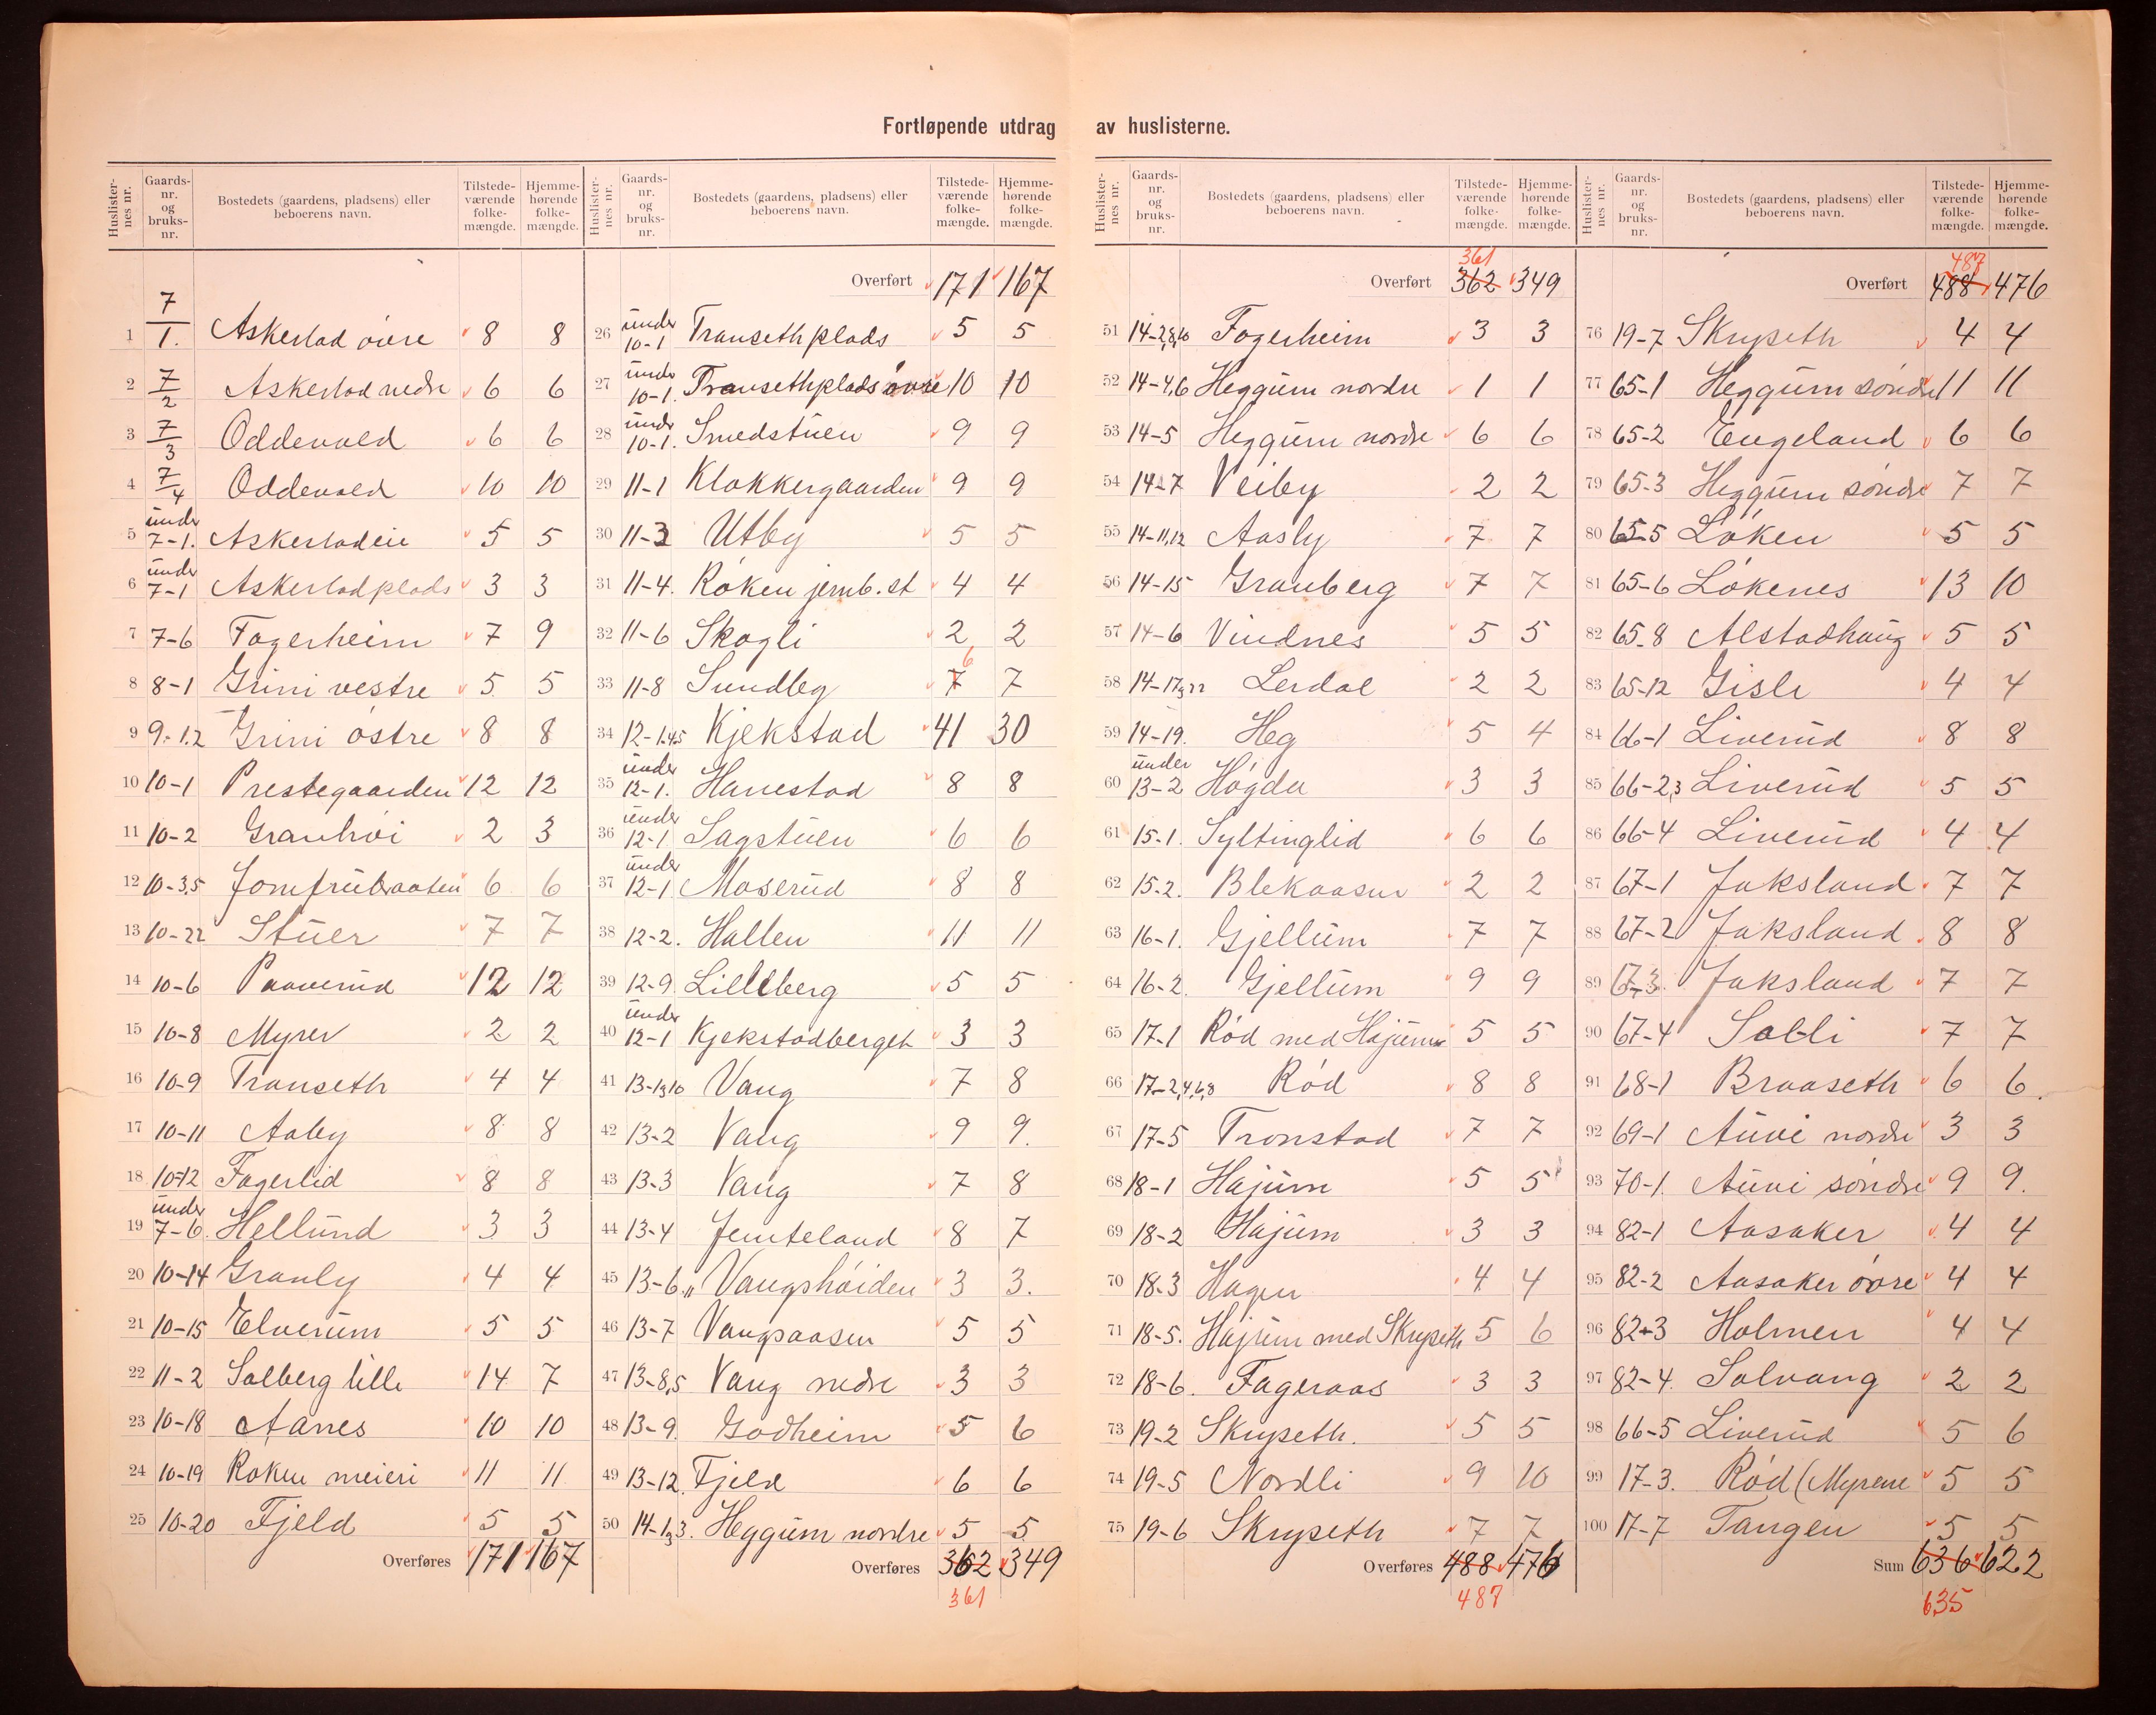 Fortløpende utdrag av huslisterne.
Huslister-nes nr. Gaards-nr. og bruks-nr. Bostedets (gaardens, pladsens) eller beboerens navn. Tilstede-værende folke-mængde. Hjemme-hørende folke-mængde.
1 7/1. Askestad övre 8 8
2 7/2 Askestad nedre 6 6
3 7/3 Oddevold 6 6
4 7/4 Oddevold 10 10
5 under 7-1. Askestadeie 5 5
6 under 7-1 Askestadplads 3 3
7 7-6 Fagerheim 7 9
8 8-1 Grini vestre 5 5
9 9-1.2 Grini östre 8 8
10 10-1 Prestegaarden 12 12
11 10-2 Granhöi 2 3
12 10-3,5 Jomfrubraaten 6 6
13 10-22 Stuer 7 7
14 10-6 Paaverud 12 12
15 10-8 Myrer 2 2
16 10-9 Transeth 4 4
17 10-11 Aaby 8 8
18 10-12 Fagerlid 8 8
19 under 7-6. Hellund 3 3
20 10-14 Granly 4 4
21 10-15 Elverum 5 5
22 11-2 Solberg lille 14 7
23 10-18 Aanes 10 10
24 10-19 Röken meieri 11 11
25 10-20 Fjeld 5 5
Overføres 171 167
Huslister-nes nr. Gaards-nr. og bruks-nr. Bostedets (gaardens, pladsens) eller beboerens navn. Tilstede-værende folke-mængde. Hjemme-hørende folke-mængde.
Overført 171 167
26 under 10-1 Transethplads 5 5
27 under 10-1. Transethplads övre 10 10
28 under 10-1. Smedstuen 9 9
29 11-1 Klokkergaarden 9 9
30 11-3 Utby 5 5
31 11-4. Röken jernb. st 4 4
32 11-6 Skogli 2 2
33 11-8 Sundby 7 6 7
34 12-1.4.5 Kjekstad 41 30
35 under 12-1. Hanestad 8 8
36 under 12-1 Sagstuen 6 6
37 under 12-1 Moserud 8 8
38 12-2. Hallen 11 11
39 12-9. Lilleberg 5 5
40 under 12-1 Kjekstadberget 3 3
41 13-1,10 Vang 7 8
42 13-2 Vang 9 9.
43 13-3 Vang 7 8
44 13-4 Jemteland 8 7
45 13-6,11 Vangshöiden 3 3.
46 13-7 Vangsaasen 5 5
47 13-8,5 Vang nedre 3 3
48 13-9. Godheim 5 6
49 13-12. Fjeld 6 6
50 14-1,3. Heggum nordre 5 5
Overføres 362 349
361
Huslister-nes nr. Gaards-nr. og bruks-nr. Bostedets (gaardens, pladsens) eller beboerens navn. Tilstede-værende folke-mængde. Hjemme-hørende folke-mængde.
361
Overført 362 349
51 14-2,8,10 Fagerheim 3 3
52 14-4,6 Heggum nordre 1 1
53 14-5 Heggum nordre 6 6
54 14-7 Veiby 2 2
55 14-11,12 Aasly 7 7
56 14-15 Granberg 7 7
57 14-6 Vindnes 5 5
58 14-17,22 Lerdal 2 2
59 14-19. Heg 5 4
60 under 13-2 Högda 3 3
61 15-1. Syltinglid 6 6
62 15-2. Blekaasen 2 2
63 16-1. Gjellum 7 7
64 16-2. Gjellum 9 9
65 17-1 Röd med Hajum 5 5
66 17-2,4,6,8 Röd 8 8
67 17-5 Tronstad 7 7
68 18-1 Hajum 5 5
69 18-2 Hajum 3 3
70 18-3 Hagen 4 4
71 18-5. Hajum med Skryseth 5 6
72 18-6. Fageraas 3 3
73 19-2 Skryseth. 5 5
74 19-5 Nordli 9 10
75 19-6 Skryseth 7 7
Overføres 488 476
487
Huslister-nes nr. Gaards-nr. og bruks-nr. Bostedets (gaardens, pladsens) eller beboerens navn. Tilstede-værende folke-mængde. Hjemme-hørende folke-mængde.
487
Overført 488 476
76 19-7 Skryseth 4 4
77 65-1 Heggum söndre 11 11
78 65-2 Engeland 6 6
79 65-3 Heggum söndre 7 7
80 65-5 Löken 5 5
81 65-6 Lökenes 13 10
82 65-8 Alstadhaug 5 5
83 65-12 Gisle 4 4
84 66-1 Liverud 8 8
85 66-2,3 Liverud 5 5
86 66-4 Liverud 4 4
87 67-1 Jaksland 7 7
88 67-2 Jaksland 8 8
89 67-3. Jaksland 7 7
90 67-4 Solli 7 7
91 68-1 Braaseth 6 6.
92 69-1 Auvi nordre 3 3
93 70-1. Auvi söndre 9 9.
94 82-1 Aasaker 4 4
95 82-2 Aasaker övre 4 4
96 82-3 Holmen 4 4
97 82-4. Solvang 2 2
98 66-5 Liverud 5 6
99 17-3. Röd (Myrene 5 5
100 17-7 Tangen 5 5
Sum 636 622
635